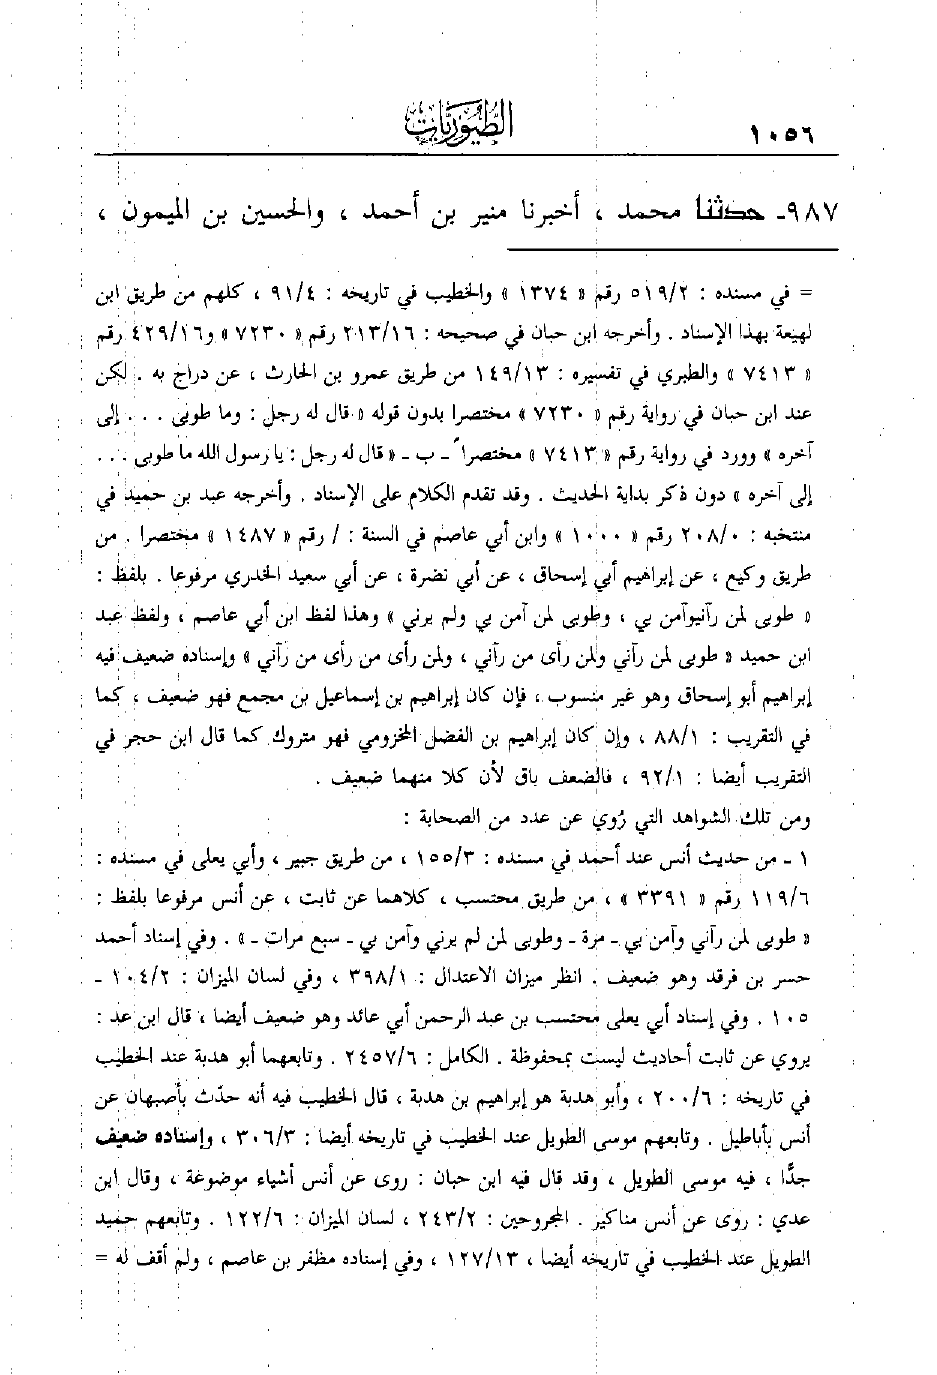 ١٠٥٦
الطيوريات
٩٨٧- حدثنا محمد ، أخبرنا منير بن أحمد ، والحسين بن الميمون ،
= في مسنده : ٥١٩/٢ رقم « ١٣٧٤ » والخطيب في تاريخه : ٩١/٤ ، كلهم من طريق ابن
لهيعة بهذا الإسناد . وأخرجه ابن حبان في صحيحه : ٢١٣/١٦ رقم « ٧٢٣٠ » و٤٢٩/١٦ رقم
« ٧٤١٣ » والطبري في تفسيره : ١٤٩/١٣ من طريق عمرو بن الحارث ، عن دراج به . لكن
عند ابن حبان في رواية رقم « ٧٢٣٠ » مختصرا بدون قوله « قال له رجل : وما طوبى . . . إلى
آخره » وورد في رواية رقم « ٧٤١٣ » مختصراً - ب - « قال له رجل : يا رسول الله ما طوبى . . .
إلى آخره » دون ذكر بداية الحديث . وقد تقدم الكلام على الإسناد . وأخرجه عبد بن حميد في
منتخبه : ٢٠٨/٠ رقم « ١٠٠٠ » وابن أبي عاصم في السنة : / رقم « ١٤٨٧ » مختصرا . من
طريق وكيع ، عن إبراهيم أبي إسحاق ، عن أبي نضرة ، عن أبي سعيد الخدري مرفوعا . بلفظ :
« طوبى لمن رآنيوآمن بي ، وطوبى لمن آمن بي ولم يرني » وهذا لفظ ابن أبي عاصم ، ولفظ عبد
ابن حميد « طوبى لمن رآني ولمن رأى من رآني ، ولمن رأى من رأى من رآني » وإسناده ضعيف فيه
إبراهيم أبو إسحاق وهو غير منسوب ، فإن كان إبراهيم بن إسماعيل بن مجمع فهو ضعيف ، كما
في التقريب : ٨٨/١ ، وإن كان إبراهيم بن الفضل المخزومي فهو متروك كما قال ابن حجر في
التقريب أيضا : ٩٢/١ ، فالضعف باق لأن كلا منهما ضعيف .
ومن تلك الشواهد التي رُوي عن عدد من الصحابة :
١ - من حديث أنس عند أحمد في مسنده : ١٥٥/٣ ، من طريق جبير ، وأبي يعلى في مسنده :
١١٩/٦ رقم « ٣٣٩١ » ، من طريق محتسب ، كلاهما عن ثابت ، عن أنس مرفوعا بلفظ :
« طوبى لمن رآني وآمن بي - مرة - وطوبى لمن لم يرني وآمن بي - سبع مرات - » . وفي إسناد أحمد
حسر بن فرقد وهو ضعيف . انظر ميزان الاعتدال : ٣٩٨/١ ، وفي لسان الميزان : ١٠٤/٢ -
١٠٥ . وفي إسناد أبي يعلى محتسب بن عبد الرحمن أبي عائد وهو ضعيف أيضا ، قال ابن عد :
يروي عن ثابت أحاديث ليست بمحفوظة . الكامل : ٢٤٥٧/٦ . وتابعهما أبو هدبة عند الخطيب
في تاريخه : ٢٠٠/٦ ، وأبو هدبة هو إبراهيم بن هدبة ، قال الخطيب فيه أنه حدّث بأصبهان عن
أنس بأباطيل . وتابعهم موسى الطويل عند الخطيب في تاريخه أيضا : ٣٠٦/٣ ، وإسناده ضعيف
جدًّا ، فيه موسى الطويل ، وقد قال فيه ابن حبان : روى عن أنس أشياء موضوعة ، وقال ابن
عدي : روى عن أنس مناكير . المجروحين : ٢٤٣/٢ ، لسان الميزان : ١٢٢/٦ . وتابعهم حميد
الطويل عند الخطيب في تاريخه أيضا ، ١٢٧/١٣ ، وفي إسناده مظفر بن عاصم ، ولم أقف له =